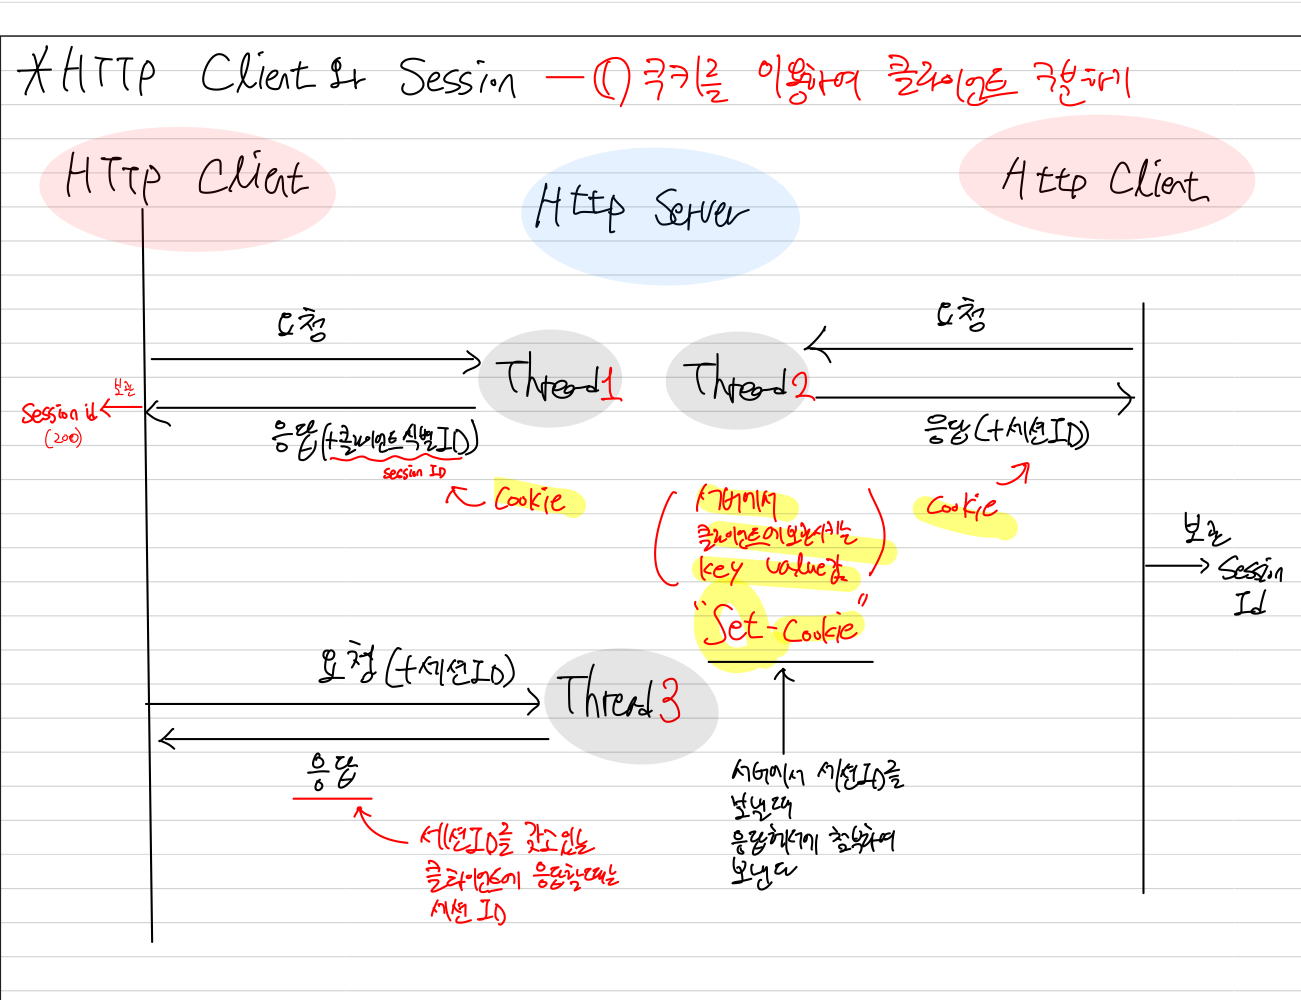 *HTTP Client와 Session - ① 쿠키를 이용하여 클라이언트 구분하기
HTTP Client
Http Server
Http Client
요청
요청
Thread1
Thread2
보관
Session id
(200)
응답(+클라이언트 식별ID)
session ID
Cookie
응답(+세션ID)
Cookie
(서버에서
클라이언트에 보관시키는
key value값)
"Set-Cookie"
보관
Session
Id
요청(+세션ID)
Thread3
응답
서버에서 세션ID를
보낼때
응답헤더에 첨부하여
보낸다
세션ID를 갖고있는
클라이언트에 응답할때는
세션ID